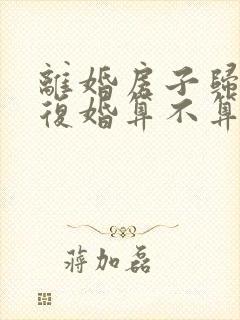 離婚房子歸
復婚算不算
蔣加磊